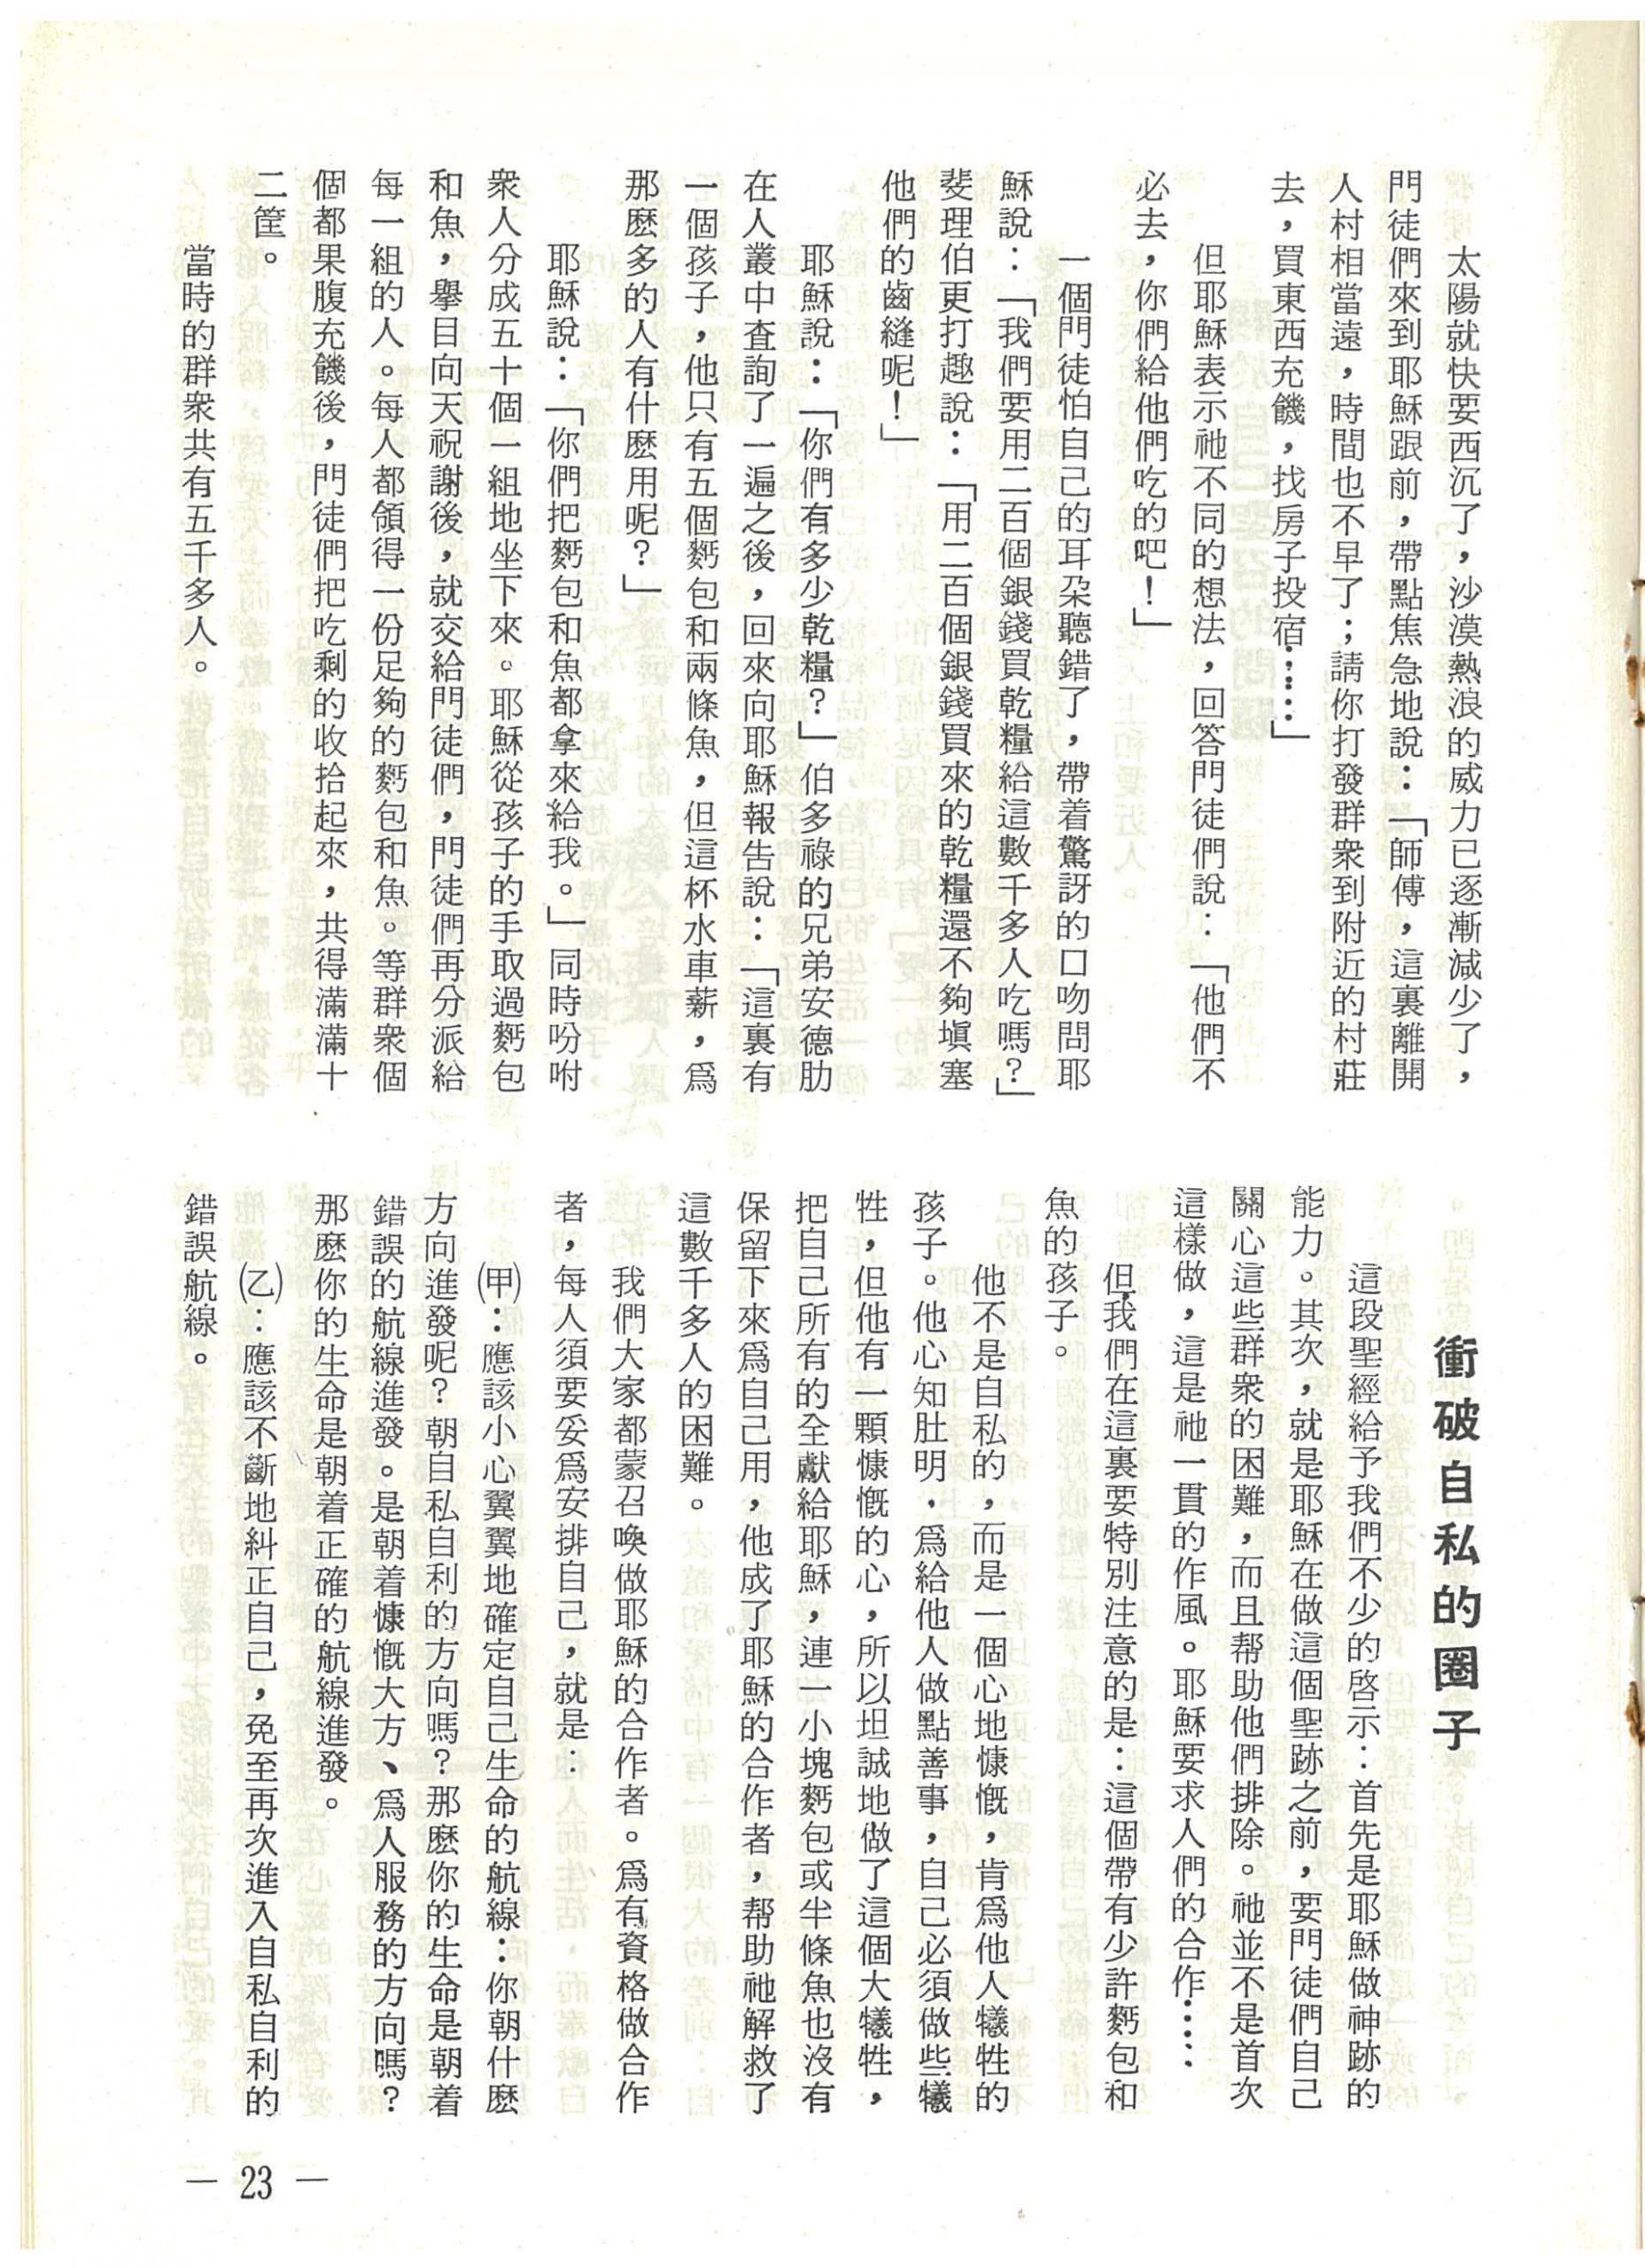 太陽就快要西沉了，沙漠熱浪的威力已逐漸減少了，
門徒們來到耶穌跟前，帶點焦急地說：「師傅，這裏離開
人村相當遠，時間也不早了；請你打發群衆到附近的村莊
去，買東西充饑，找房子投宿……」
但耶穌表示祂不同的想法，回答門徒們說：「他們不
必去，你們給他們吃的吧！」
一個門徒怕自己的耳朶聽錯了，帶着驚訝的口吻問耶
穌說：「我們要用二百個銀錢買乾糧給這數千多人吃嗎？」
斐理伯更打趣說：「用二百個銀錢買來的乾糧還不夠塡塞
他們的齒縫呢！」
耶穌說：「你們有多少乾糧？」伯多祿的兄弟安德肋
在人叢中查詢了一遍之後，回來向耶穌報告說：「這裏有
一個孩子，他只有五個麪包和兩條魚，但這杯水車薪，爲
那麽多的人有什麽用呢？」
耶穌說：「你們把麪包和魚都拿來給我。」同時吩咐
衆人分成五十個一組地坐下來。耶穌從孩子的手取過麪包
和魚，擧目向天祝謝後，就交給門徒們，門徒們再分派給
每一組的人。每人都領得一份足夠的麪包和魚。等群衆個
個都果腹充饑後，門徒們把吃剩的收拾起來，共得滿滿十
二筐。
當時的群衆共有五千多人。
衝破自私的圈子
這段聖經給予我們不少的啓示：首先是耶穌做神跡的
能力。其次，就是耶穌在做這個聖跡之前，要門徒們自己
關心這些群衆的困難，而且帮助他們排除。祂並不是首次
這樣做，這是祂一貫的作風。耶穌要求人們的合作……
但我們在這裏要特別注意的是：這個帶有少許麪包和
魚的孩子。
他不是自私的，而是一個心地慷慨，肯爲他人犧牲的
孩子。他心知肚明，爲給他人做點善事，自己必須做些犧
牲，但他有一顆慷慨的心，所以坦誠地做了這個大犧牲，
把自己所有的全獻給耶穌，連一小塊麪包或半條魚也沒有
保留下來爲自己用，他成了耶穌的合作者，帮助祂解救了
這數千多人的困難。
我們大家都蒙召喚做耶穌的合作者。爲有資格做合作
者，每人須要妥爲安排自己，就是：
(甲)：應該小心翼翼地確定自己生命的航線：你朝什麽
方向進發呢？朝自私自利的方向嗎？那麽你的生命是朝着
錯誤的航線進發。是朝着慷慨大方、爲人服務的方向嗎？
那麽你的生命是朝着正確的航線進發。
(乙)：應該不斷地糾正自己，免至再次進入自私自利的
錯誤航線。
— 23 —